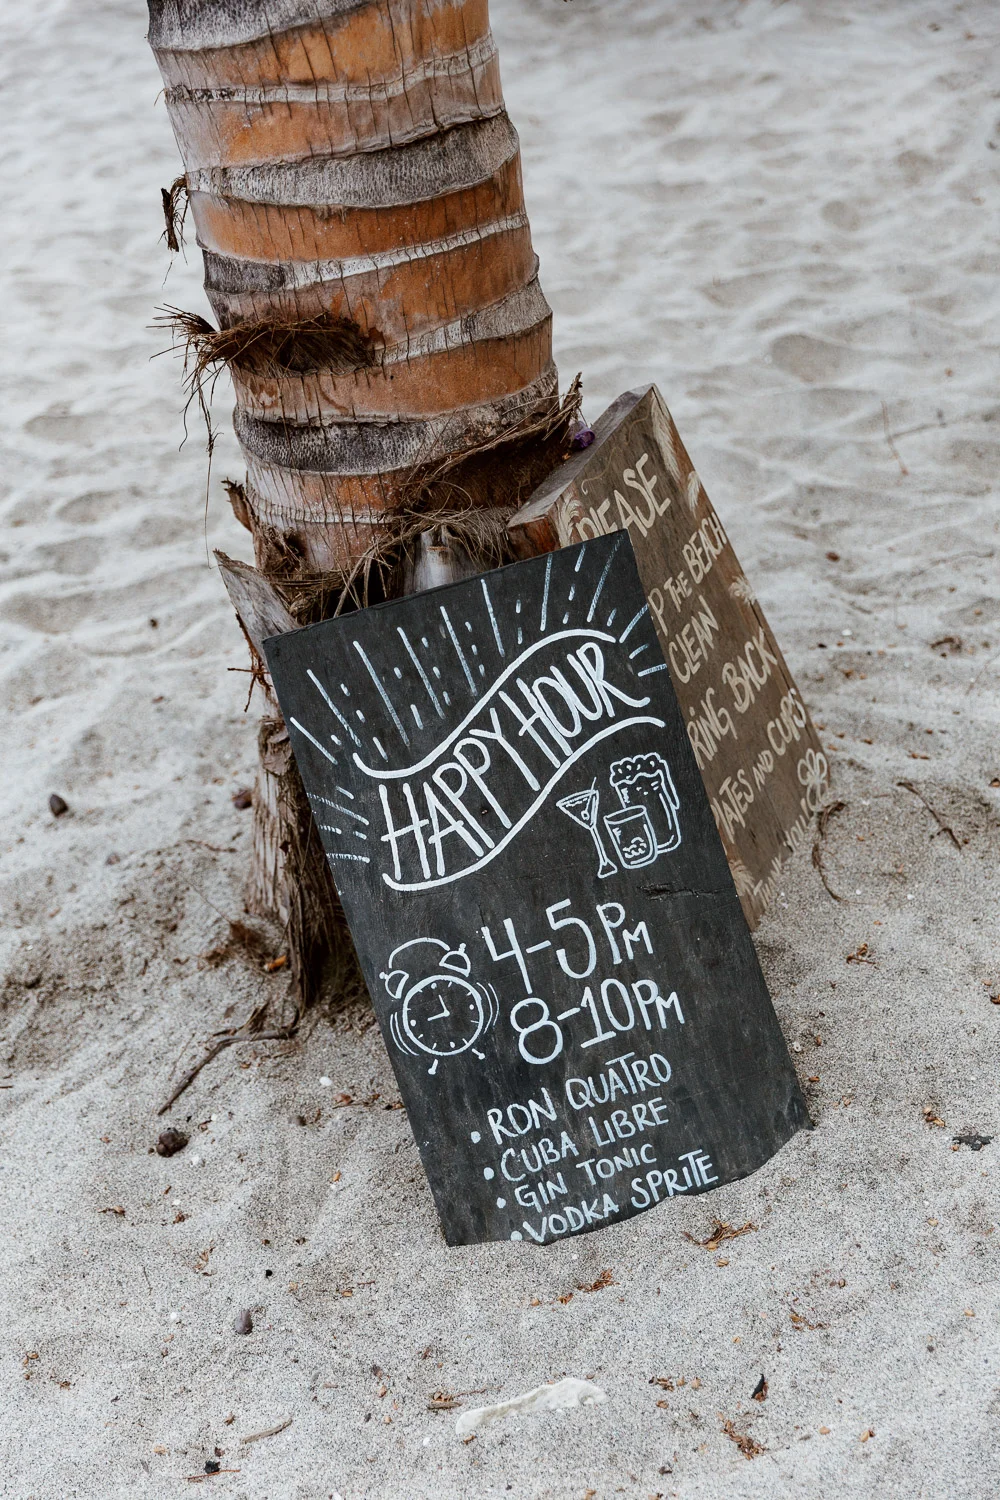 HAPPY HOUR
4-5PM
8-10PM
• RON QUATRO
• CUBA LIBRE
• GIN TONIC
• VODKA SPRITE
PLEASE
P THE BEACH
CLEAN
RING BACK
ATES AND CUPS
THANK YOU